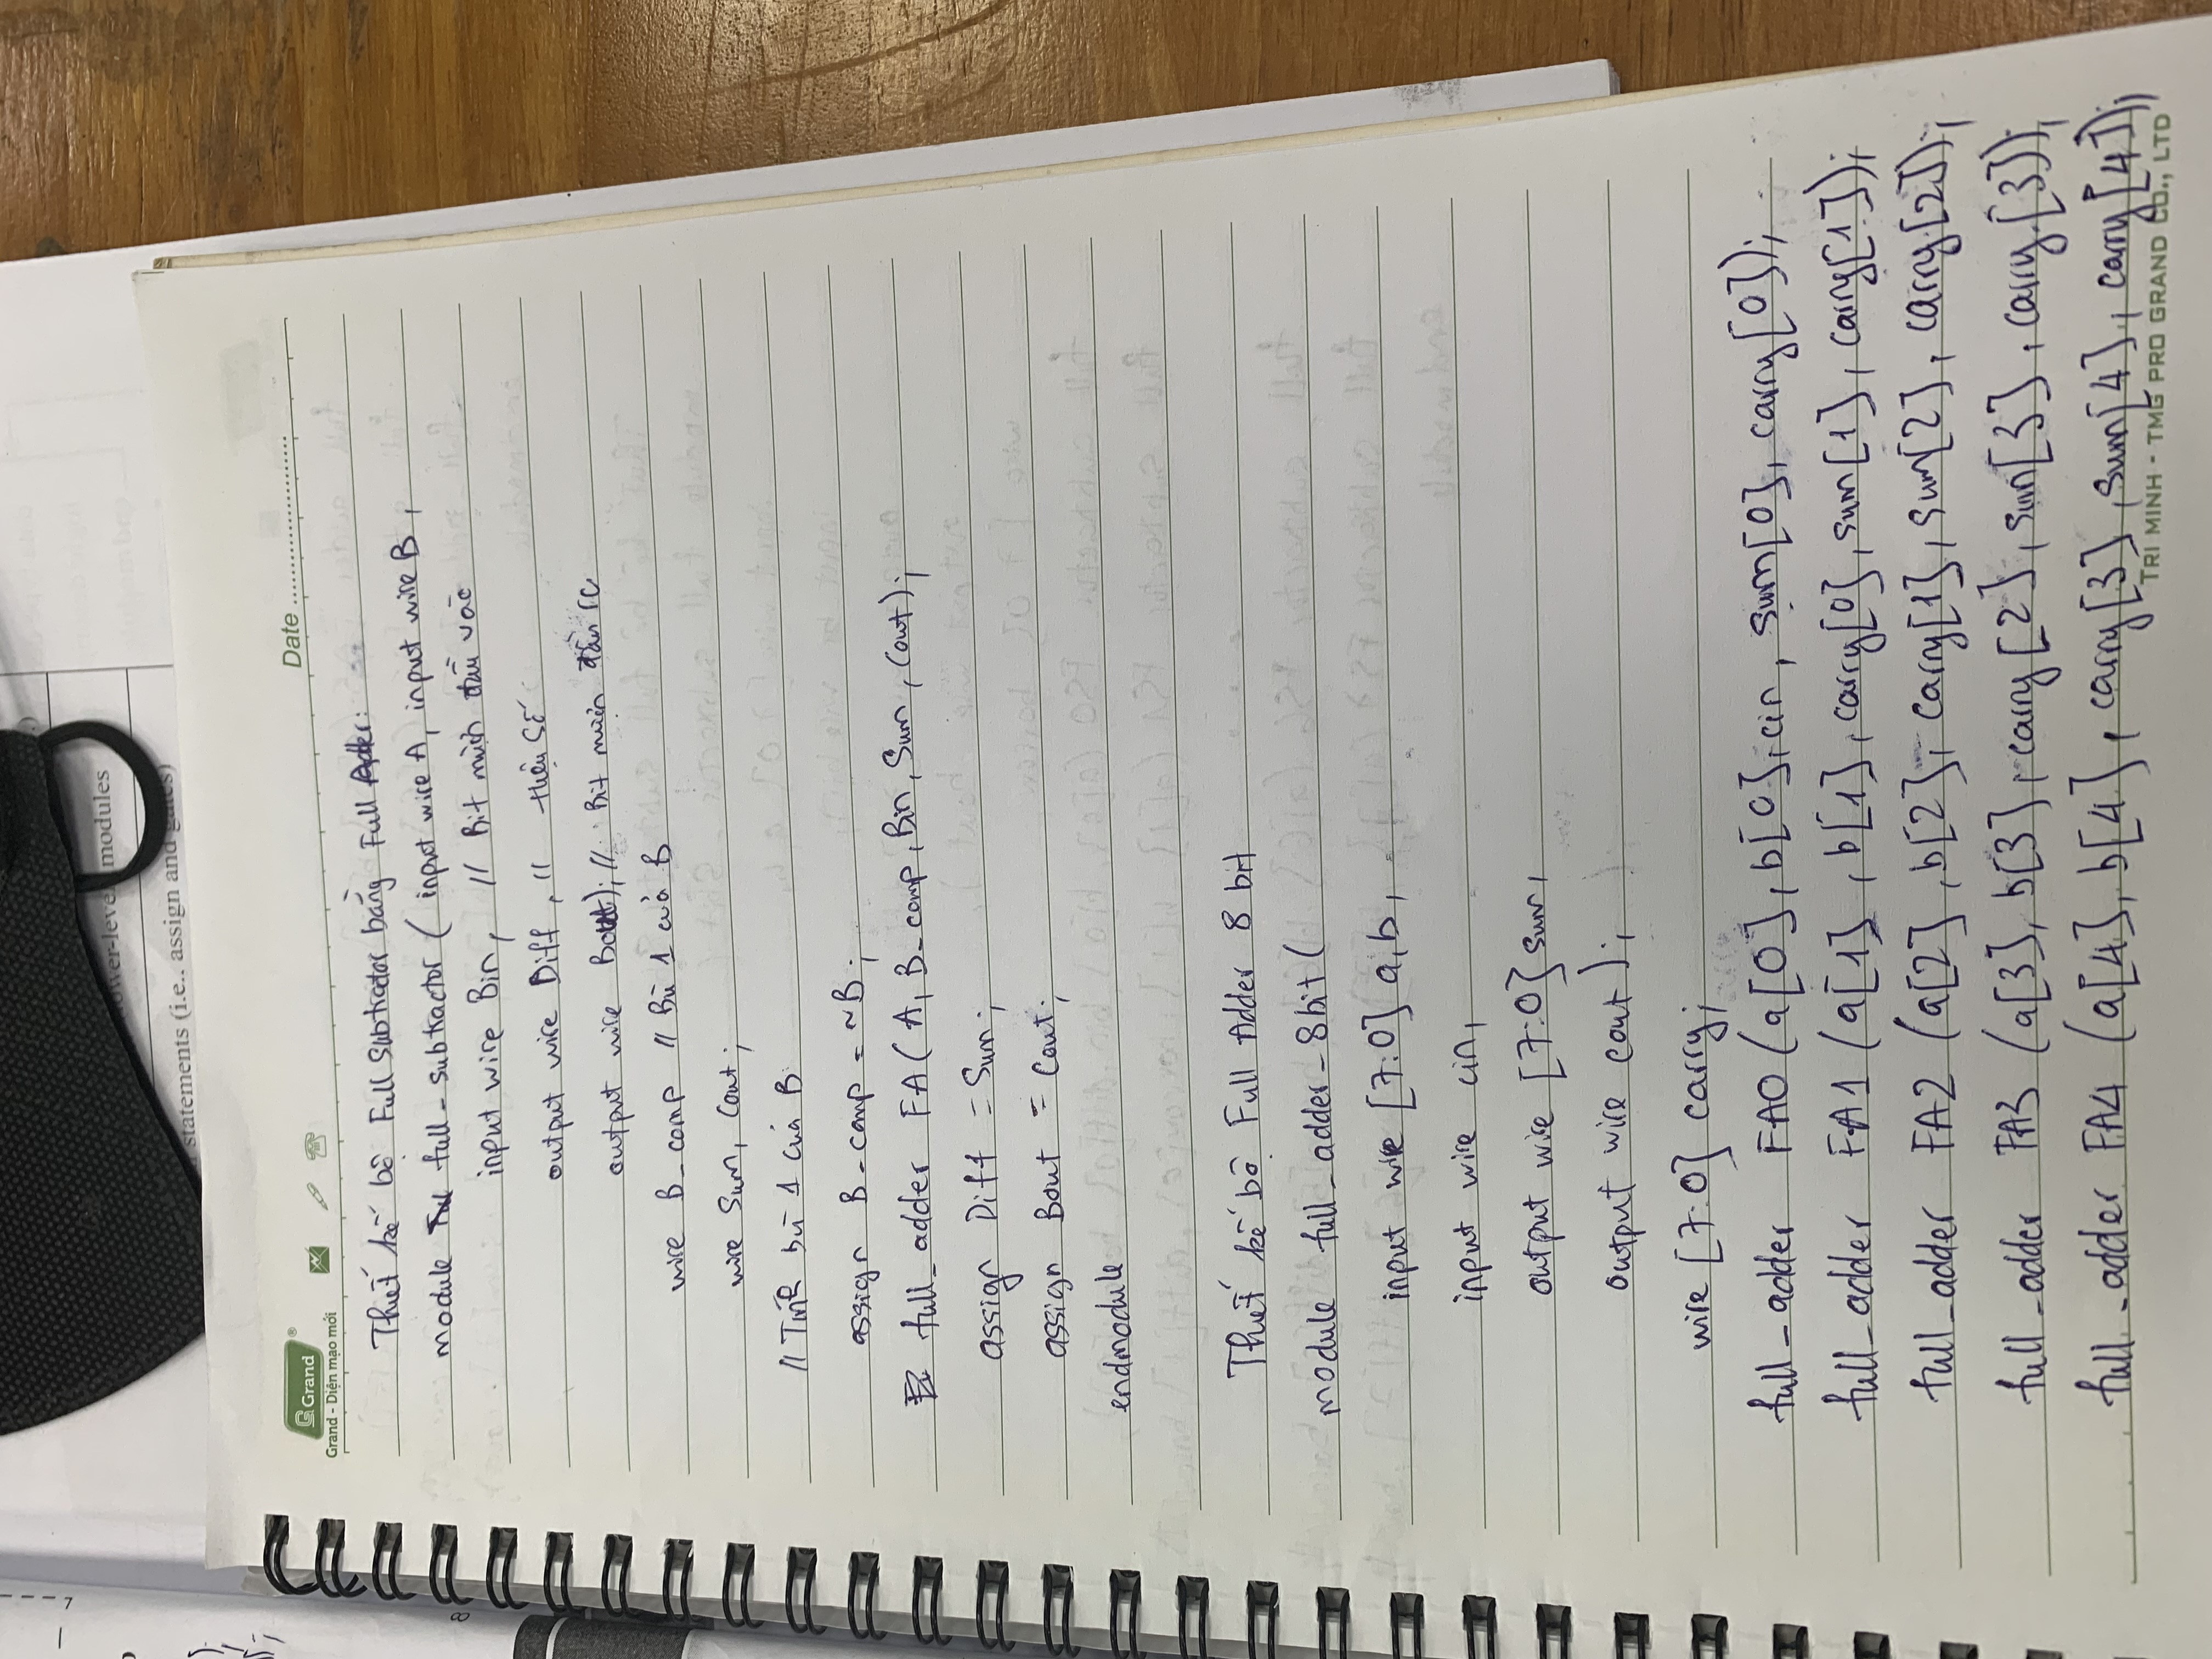 ower-leve modules
statements (i.e., assign and gates)
Grand ®
Grand - Diện mạo mới
Date
Thiết kế bộ Full Subtractor bằng Full Adder:
module full_subtractor ( input wire A, input wire B,
input wire Bin, // Bit mượn đầu vào
output wire Diff, // Hiệu số
output wire Bout); // Bit mượn đầu ra
wire B_comp // Bù 1 của B
wire Sum, Cout;
// Tính bù 1 của B
assign B_comp = ~B;
full_adder FA( A, B_comp, Bin, Sum, Cout);
assign Diff = Sum;
assign Bout = Cout;
endmodule
Thiết kế bộ Full Adder 8 bit
module full_adder_8bit (
input wire [7:0] a,b,
input wire cin,
output wire [7:0] sum,
output wire cout );
wire [7:0] carry;
full_adder FA0 (a[0], b[0], cin, sum[0], carry[0]);
full_adder FA1 (a[1], b[1], carry[0], sum[1], carry[1]);
full_adder FA2 (a[2], b[2], carry[1], sum[2], carry[2]);
full_adder FA3 (a[3], b[3], carry[2], sum[3], carry[3]);
full_adder FA4 (a[4], b[4], carry[3], sum[4], carry[4]);
TRI MINH - TMG PRO GRAND CO., LTD